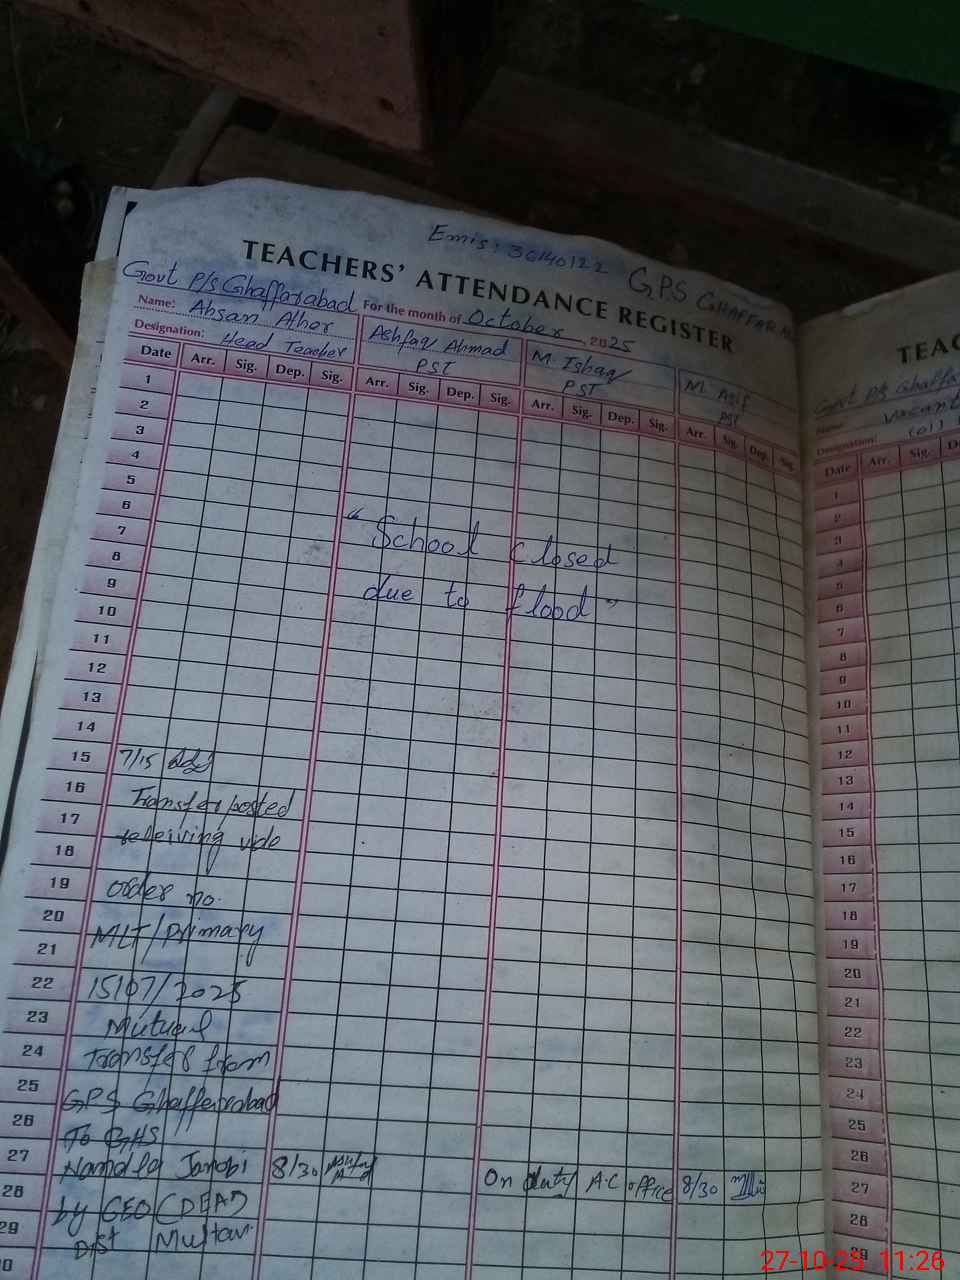 Emis: 36140122 GPS GHAFFARABAD
TEACHERS' ATTENDANCE REGISTER
Govt P/S Ghaffarabad For the month of October 2025
Name: Ahsan Ather Ashfaq Ahmad M. Ishaq M. Asif
Designation: Head Teacher PST PST PST
Date Arr. Sig. Dep. Sig. Arr. Sig. Dep. Sig. Arr. Sig. Dep. Sig. Arr. Sig. Dep. Sig.
1
2
3
4
5
6
7
8
9
10
11
12
13
14
15 7/15
16 Transfer/posted
17
18 receiving vide
19 order no.
20
21 MLT/Primary
22 15107/2025
23 Mutual
24 Transfer from
25 GPS Ghaffarabad
26 To GHS
27 8/30 On duty A.C office 8/30
28 by CEO (DEA)
29 Dist Multan
"School closed
due to flood"
TEAC
Govt P/S Ghaffa
Name: Vacant
Designation:
Date Arr. Sig. D
1
2
3
4
5
6
7
8
9
10
11
12
13
14
15
16
17
18
19
20
21
22
23
24
25
26
27
28
29
27-10-25 11:26